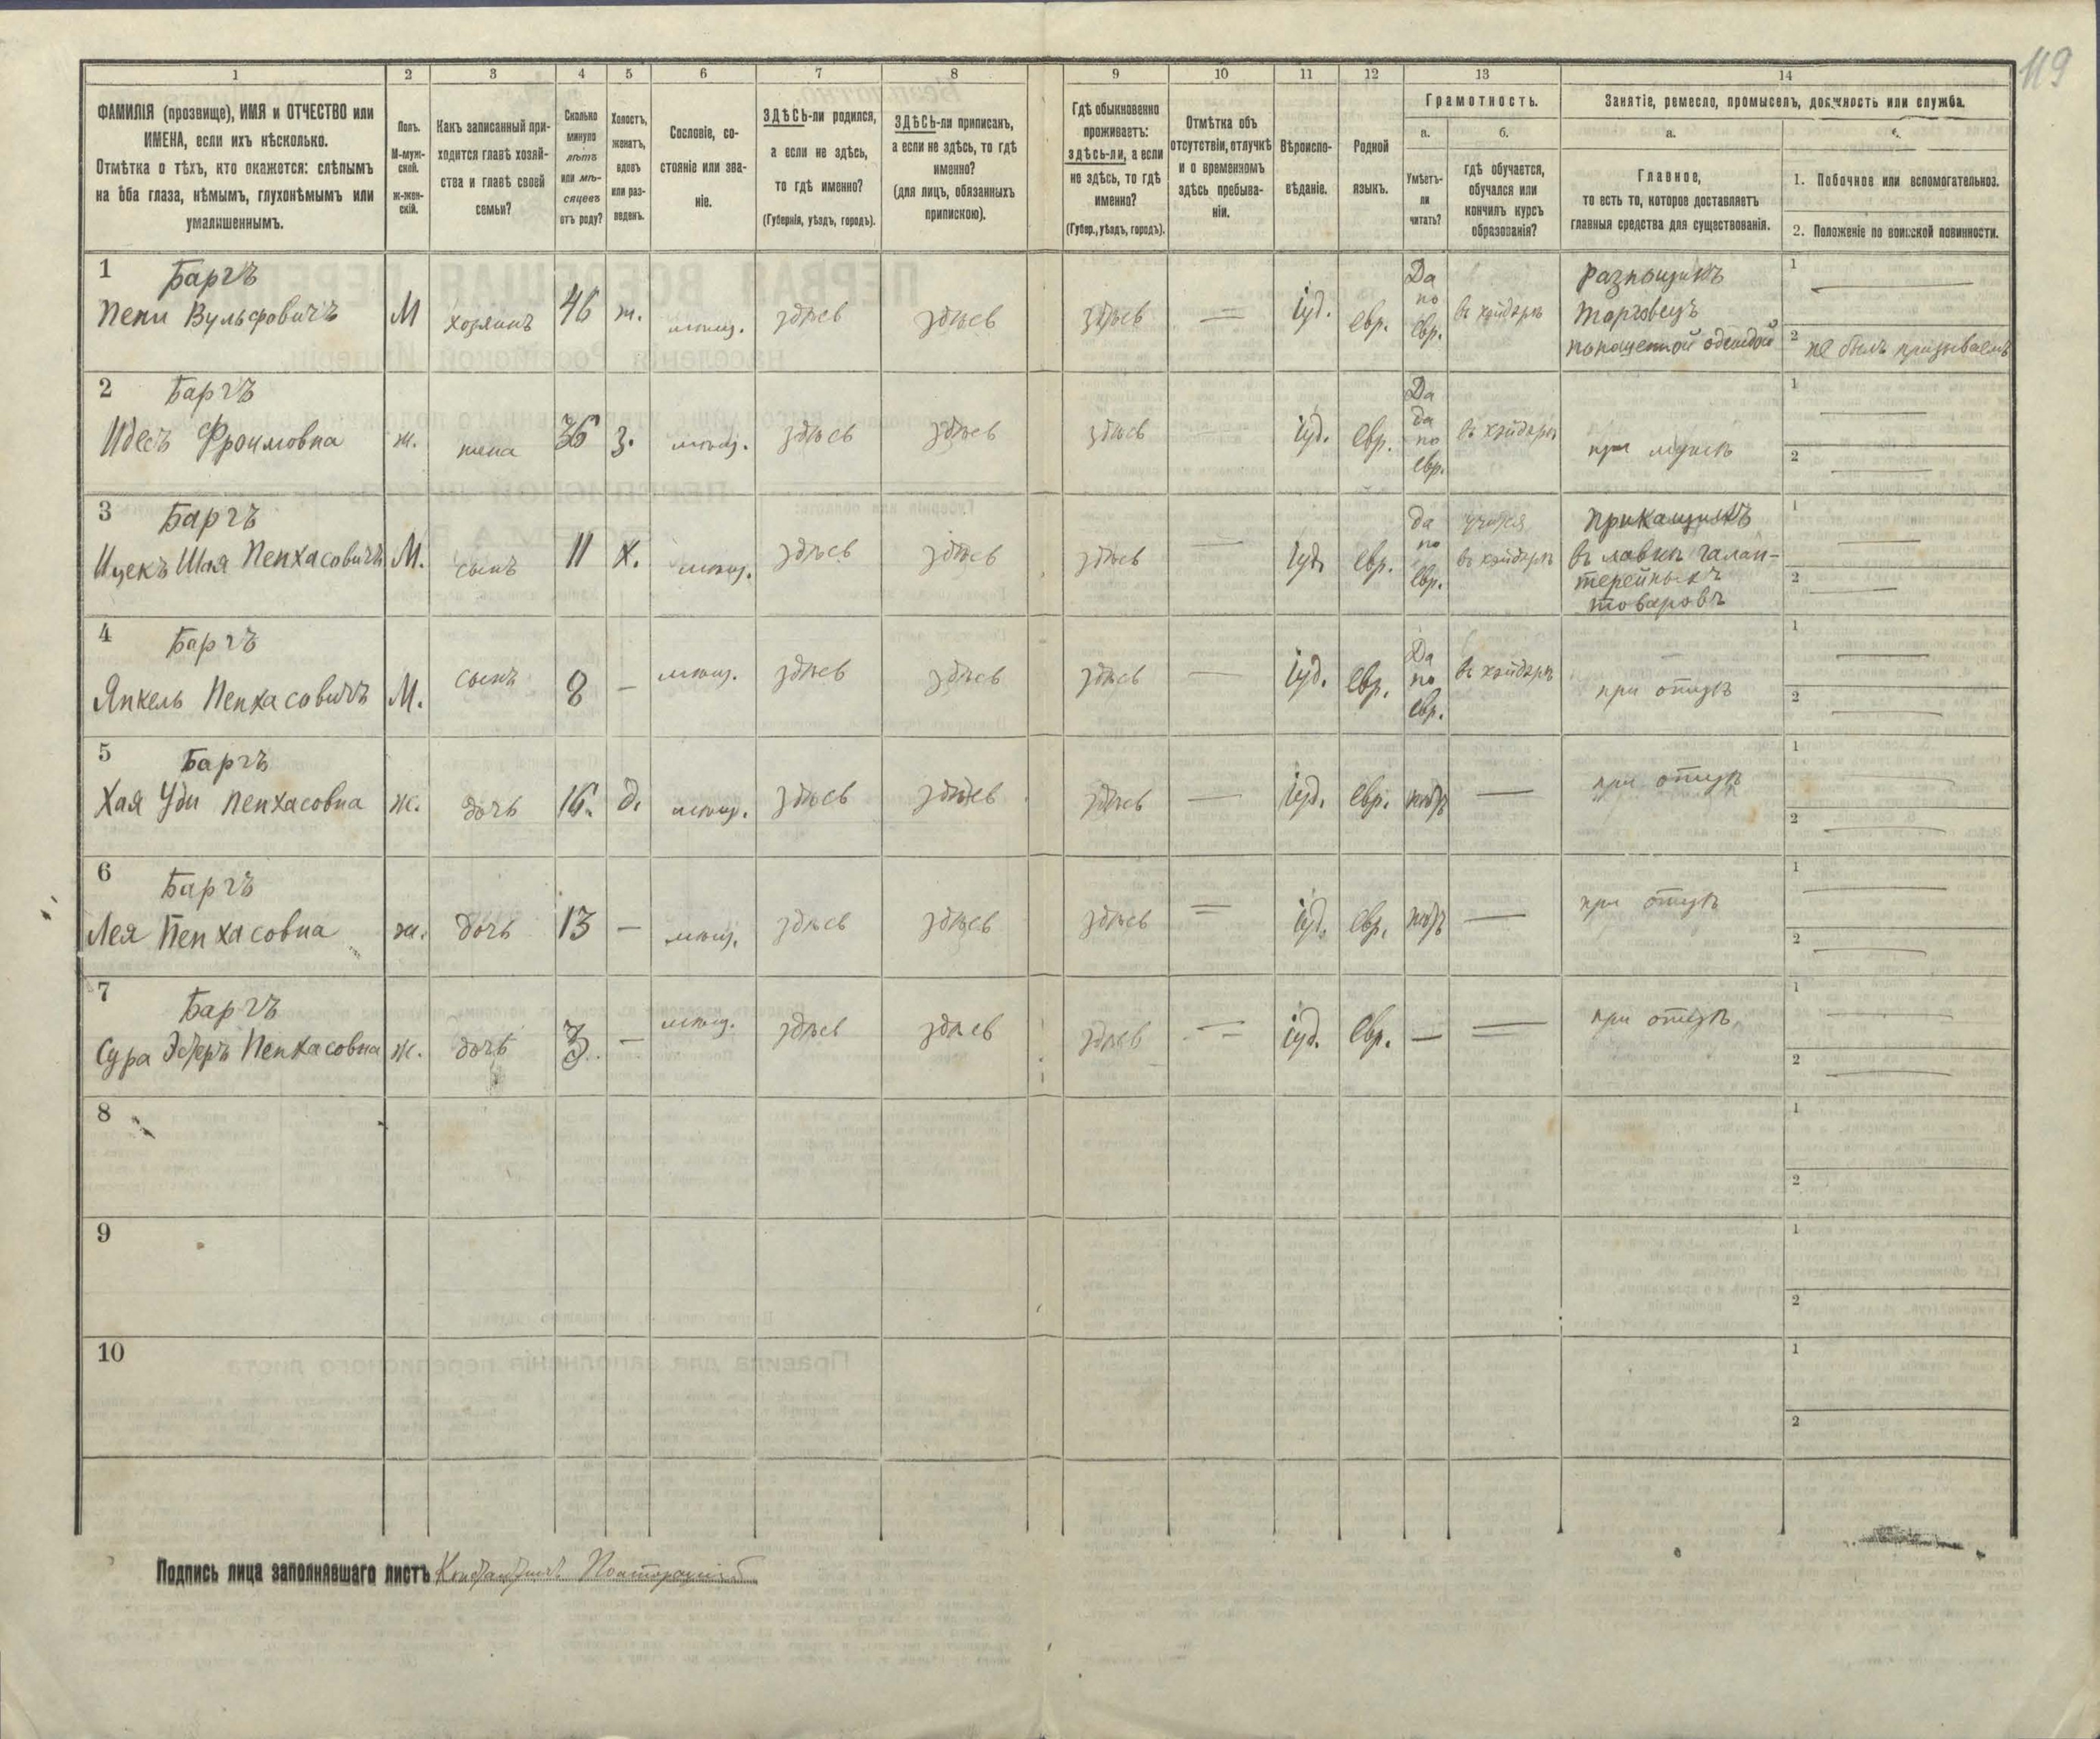 119
1 2 3 4 5 6 7 8 9 10 11 12 13 14
ФАМИЛІЯ (прозвище), ИМЯ и ОТЧЕСТВО или
ИМЕНА, если ихъ нѣсколько.
Отмѣтка о тѣхъ, кто окажется: слѣпымъ
на оба глаза, нѣмымъ, глухонѣмымъ или
умалишеннымъ.
Полъ.
М-муж-
ской.
ж-жен-
скій.
Какъ записанный при-
ходится главѣ хозяй-
ства и главѣ своей
семьи?
Сколько
минуло
лѣтъ
или мѣ-
сяцевъ
отъ роду?
Холостъ,
женатъ,
вдовъ
или раз-
веденъ.
Сословіе, со-
стояніе или зва-
ніе.
ЗДѢСЬ-ли родился,
а если не здѣсь,
то гдѣ именно?
(Губернія, уѣздъ, городъ).
ЗДѢСЬ-ли приписанъ,
а если не здѣсь, то гдѣ
именно?
(для лицъ, обязанныхъ
припискою).
Гдѣ обыкновенно
проживаетъ:
здѣсь-ли, а если
не здѣсь, то гдѣ
именно?
(Губер., уѣздъ, городъ).
Отмѣтка объ
отсутствіи, отлучкѣ
и о временномъ
здѣсь пребыва-
ніи.
Вѣроиспо-
вѣданіе.
Родной
языкъ.
Грамотность.
а.
Умѣетъ-
ли
читать?
б.
гдѣ обучается,
обучался или
кончилъ курсъ
образованія?
Занятіе, ремесло, промыселъ, должность или служба.
а.
Главное,
то есть то, которое доставляетъ
главныя средства для существованія.
1. Побочное или вспомогательное.
2. Положеніе по воинской повинности.
1 Баргъ
Пени Вульфовичъ М хозяинъ 46 ж. мѣщ. здѣсь здѣсь здѣсь — іуд. евр. Да по евр. въ хэйдерѣ
Разнощикъ
торговецъ
поношенной одеждой
1 —
2 не былъ призываемъ
2 Баргъ
Идесъ Фроимовна ж. жена 36 з. мѣщ. здѣсь здѣсь здѣсь — іуд. евр. Да да по евр. въ хэйдерѣ при мужѣ
1 —
2 —
3 Баргъ
Ицекъ Шая Пенхасовичъ М. сынъ 11 х. мѣщ. здѣсь здѣсь здѣсь — іуд. евр. да по евр. учится въ хэйдерѣ
Прикащикъ
въ лавкѣ галан-
терейныхъ
товаровъ
1 —
2 —
4 Баргъ
Янкель Пенхасовичъ М. сынъ 8 — мѣщ. здѣсь здѣсь здѣсь — іуд. евр. Да по евр. въ хэйдерѣ при отцѣ
1 —
2 —
5 Баргъ
Хая Уди Пенхасовна ж. дочь 16. д. мѣщ. здѣсь здѣсь здѣсь — іуд. евр. нѣтъ — при отцѣ
1 —
2 —
6 Баргъ
Лея Пенхасовна ж. дочь 13 — мѣщ. здѣсь здѣсь здѣсь — іуд. евр. нѣтъ — при отцѣ
1 —
2 —
7 Баргъ
Сура Эстеръ Пенхасовна ж. дочь 3 — мѣщ. здѣсь здѣсь здѣсь — іуд. евр. — — при отцѣ
1 —
2 —
8
1
2
9
1
2
10
1
2
Подпись лица заполнявшаго листъ